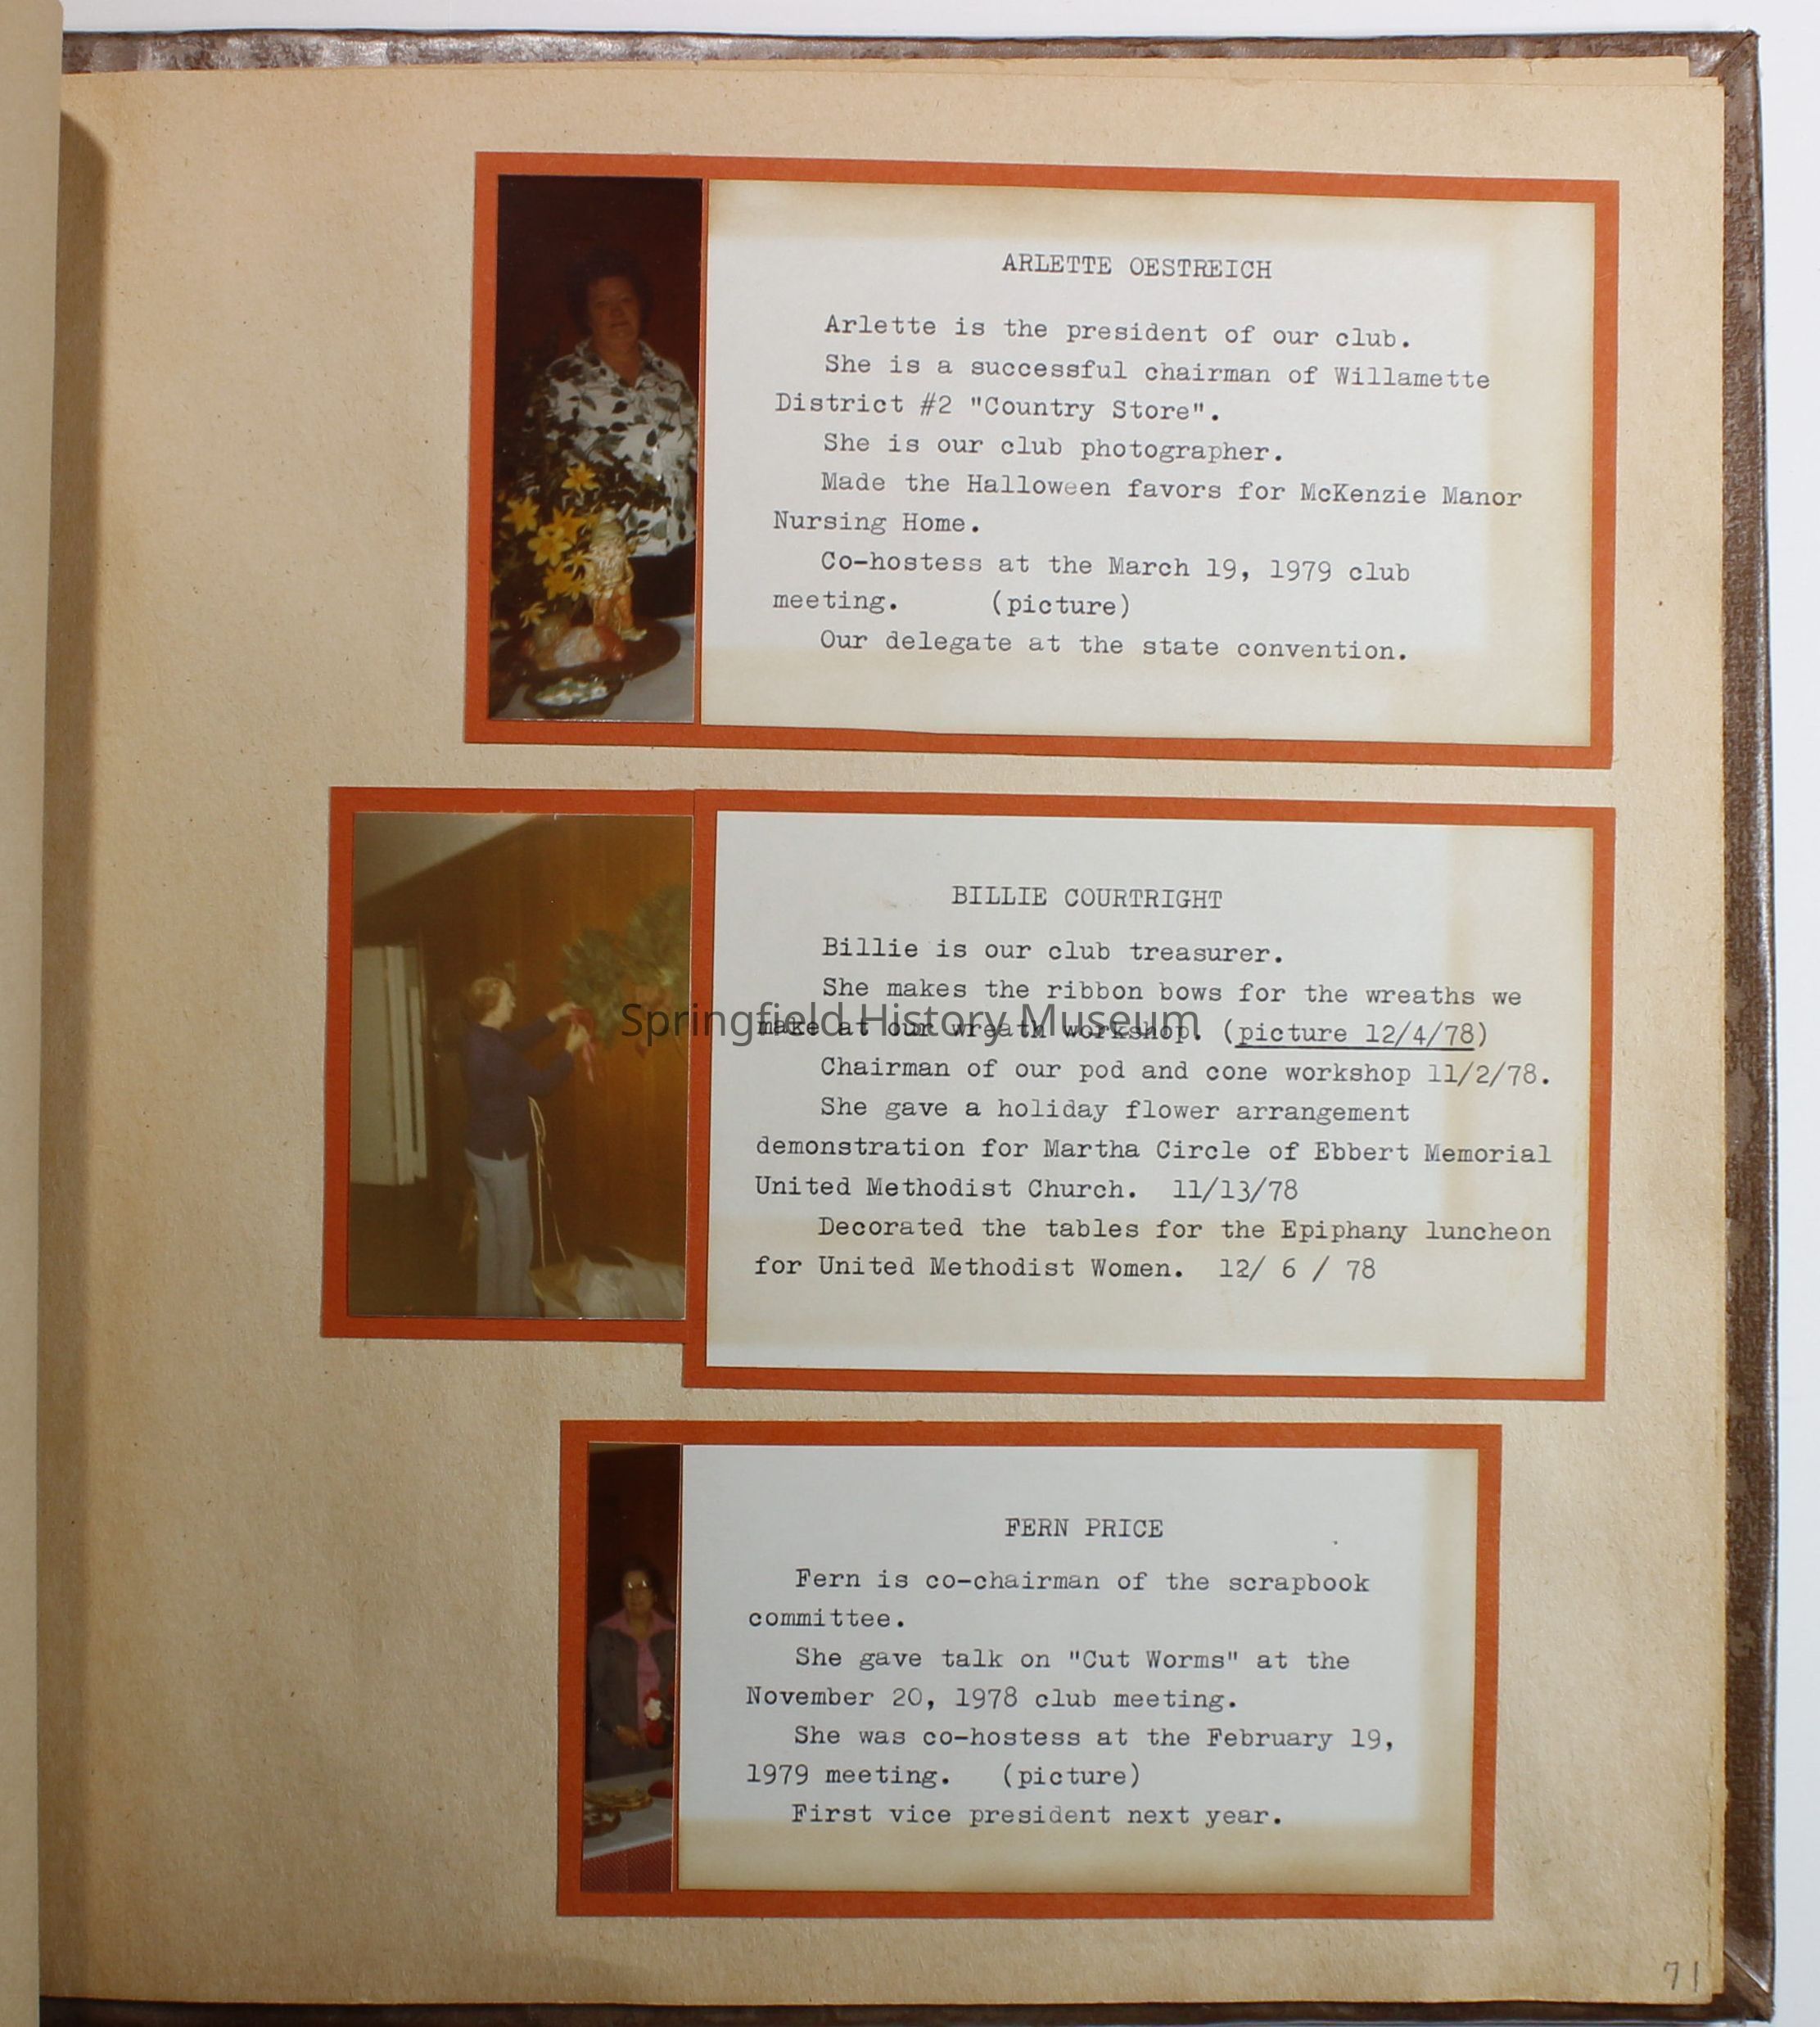 ARLETTE OESTREICH
Arlette is the president of our club.
She is a successful chairman of Willamette
District #2 "Country Store".
She is our club photographer.
Made the Halloween favors for McKenzie Manor
Nursing Home.
Co-hostess at the March 19, 1979 club
meeting. (picture)
Our delegate at the state convention.
BILLIE COURTRIGHT
Billie is our club treasurer.
She makes the ribbon bows for the wreaths we
make at our wreath workshop. (picture 12/4/78)
Springfield History Museum
Chairman of our pod and cone workshop 11/2/78.
She gave a holiday flower arrangement
demonstration for Martha Circle of Ebbert Memorial
United Methodist Church. 11/13/78
Decorated the tables for the Epiphany luncheon
for United Methodist Women. 12/ 6 / 78
FERN PRICE
Fern is co-chairman of the scrapbook
committee.
She gave talk on "Cut Worms" at the
November 20, 1978 club meeting.
She was co-hostess at the February 19,
1979 meeting. (picture)
First vice president next year.
71